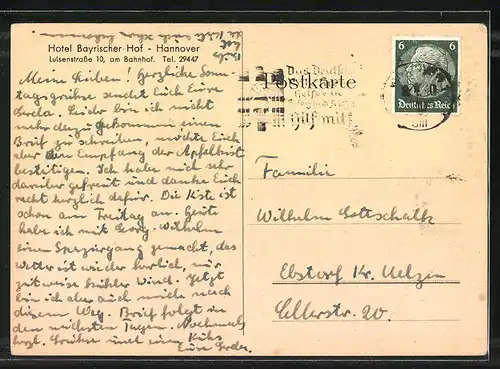 Hotel Bayrischer Hof - Hannover
Luisenstraße 10, am Bahnhof. Tel. 29447
Meine Lieben! Herzliche Sonn-
tagsgrüße sendet Euch Eure
Leider bin ich nicht
mehr dazu gekommen einen
Brief zu schreiben, möchte Euch
aber den Empfang der
bestätigen. Ich habe mich sehr
darüber gefreut und danke Euch
recht herzlich dafür. Die Kiste ist
schon am Freitag an. Heute
habe ich mit Georg-Wilhelm
einen Spaziergang gemacht, das
Wetter ist wieder herrlich, nur
zeitweise kühler Wind. Jetzt
bin ich aber auch müde nach
diesem Weg. Brief folgt in
den nächsten Tagen. Nochmals
herzl. Grüße und einen Kuß
Eure
Postkarte
Hilf mit
6 6
Deutsches Reich
Familie
Wilhelm Gottschalk
Ebstorf Kr. Uelzen
Cellerstr. 20.